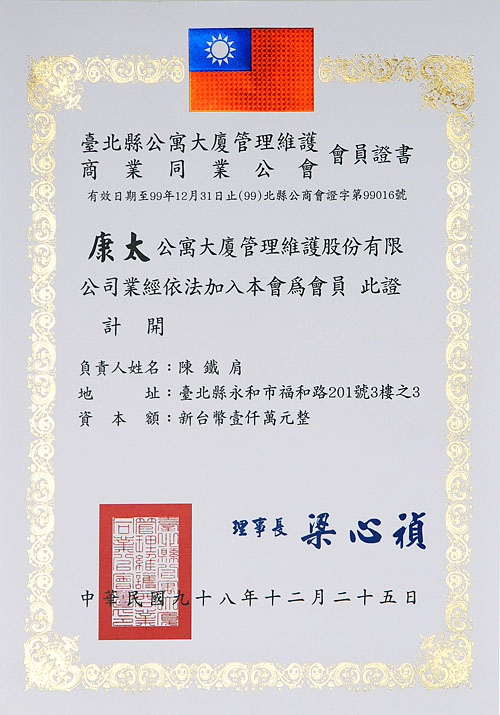 臺北縣公寓大廈管理維護
商業同業公會 會員證書
有效日期至99年12月31日止(99)北縣公商會證字第99016號
康太公寓大廈管理維護股份有限
公司業經依法加入本會爲會員 此證
計 開
負責人姓名：陳鐵肩
地 址：臺北縣永和市福和路201號3樓之3
資 本 額：新台幣壹仟萬元整
理事長 梁心禎
中華民國九十八年十二月二十五日